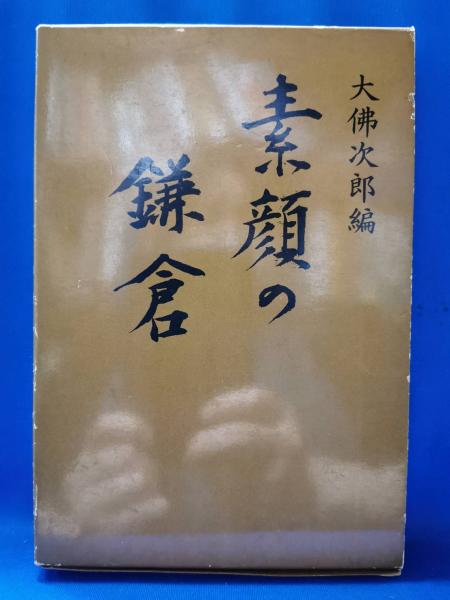 大佛次郎編
素顔の
鎌倉